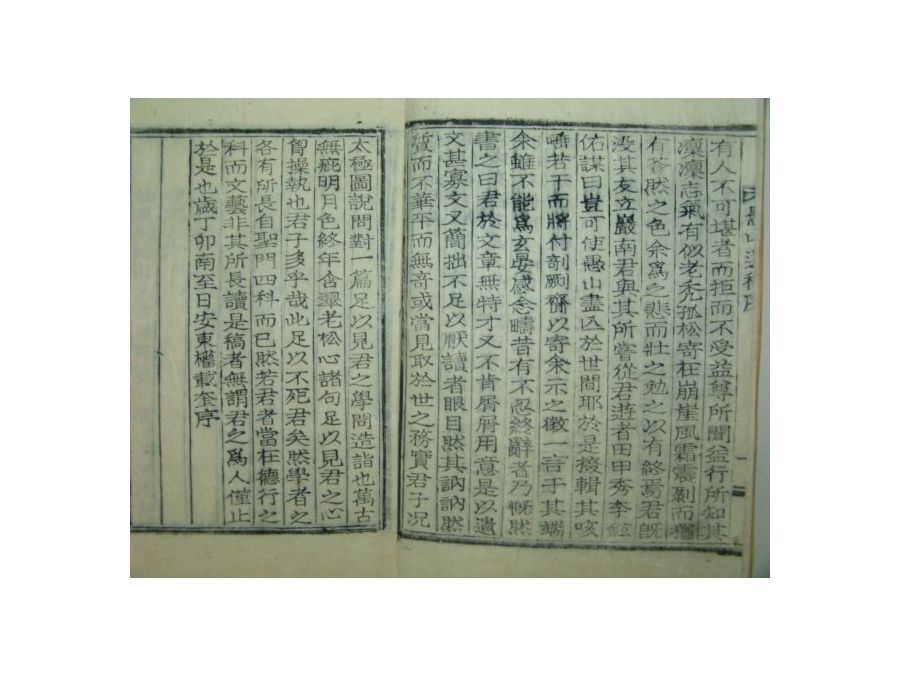 愚山遺稿序
有人不可堪者而拒而不受益尊所聞益行所知其
凜凜志氣有似老禿孤松寄在崩崖風霜震剝而猶
有蒼然之色余爲之悲而壯之勉之以有終焉君旣
沒其友立巖南君與其所嘗從君遊者田甲秀李鉉
佑謀曰豈可使愚山盡亾於世間耶於是掇輯其咳
唾若干而將付剖劂齋以寄余示之徵一言于其端
余雖不能爲玄晏感念疇昔有不忍終辭者乃慨然
書之曰君於文章無特才又不肯屑屑用意是以遺
文甚寡文又簡拙不足以厭讀者眼目然其訥訥然
質而不華平而無奇或當見取於世之務實君子况
太極圖說問對一篇足以見君之學問造詣也萬古
無疵明月色終年含翠老松心諸句足以見君之心
智操執也君子多乎哉此足以不死君矣然學者之
各有所長自聖門四科而已然若君者當在德行之
科而文藝非其所長讀是稿者無謂君之爲人僅止
於是也歲丁卯南至日安東權載奎序